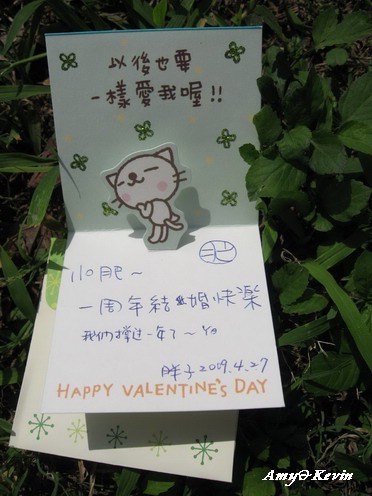 以後也要
一樣愛我喔!!
肥
小肥~
一周年結婚快樂
我們撐過一年了~Ya
胖子2009.4.27
HAPPY VALENTINE'S DAY
Amy & Kevin